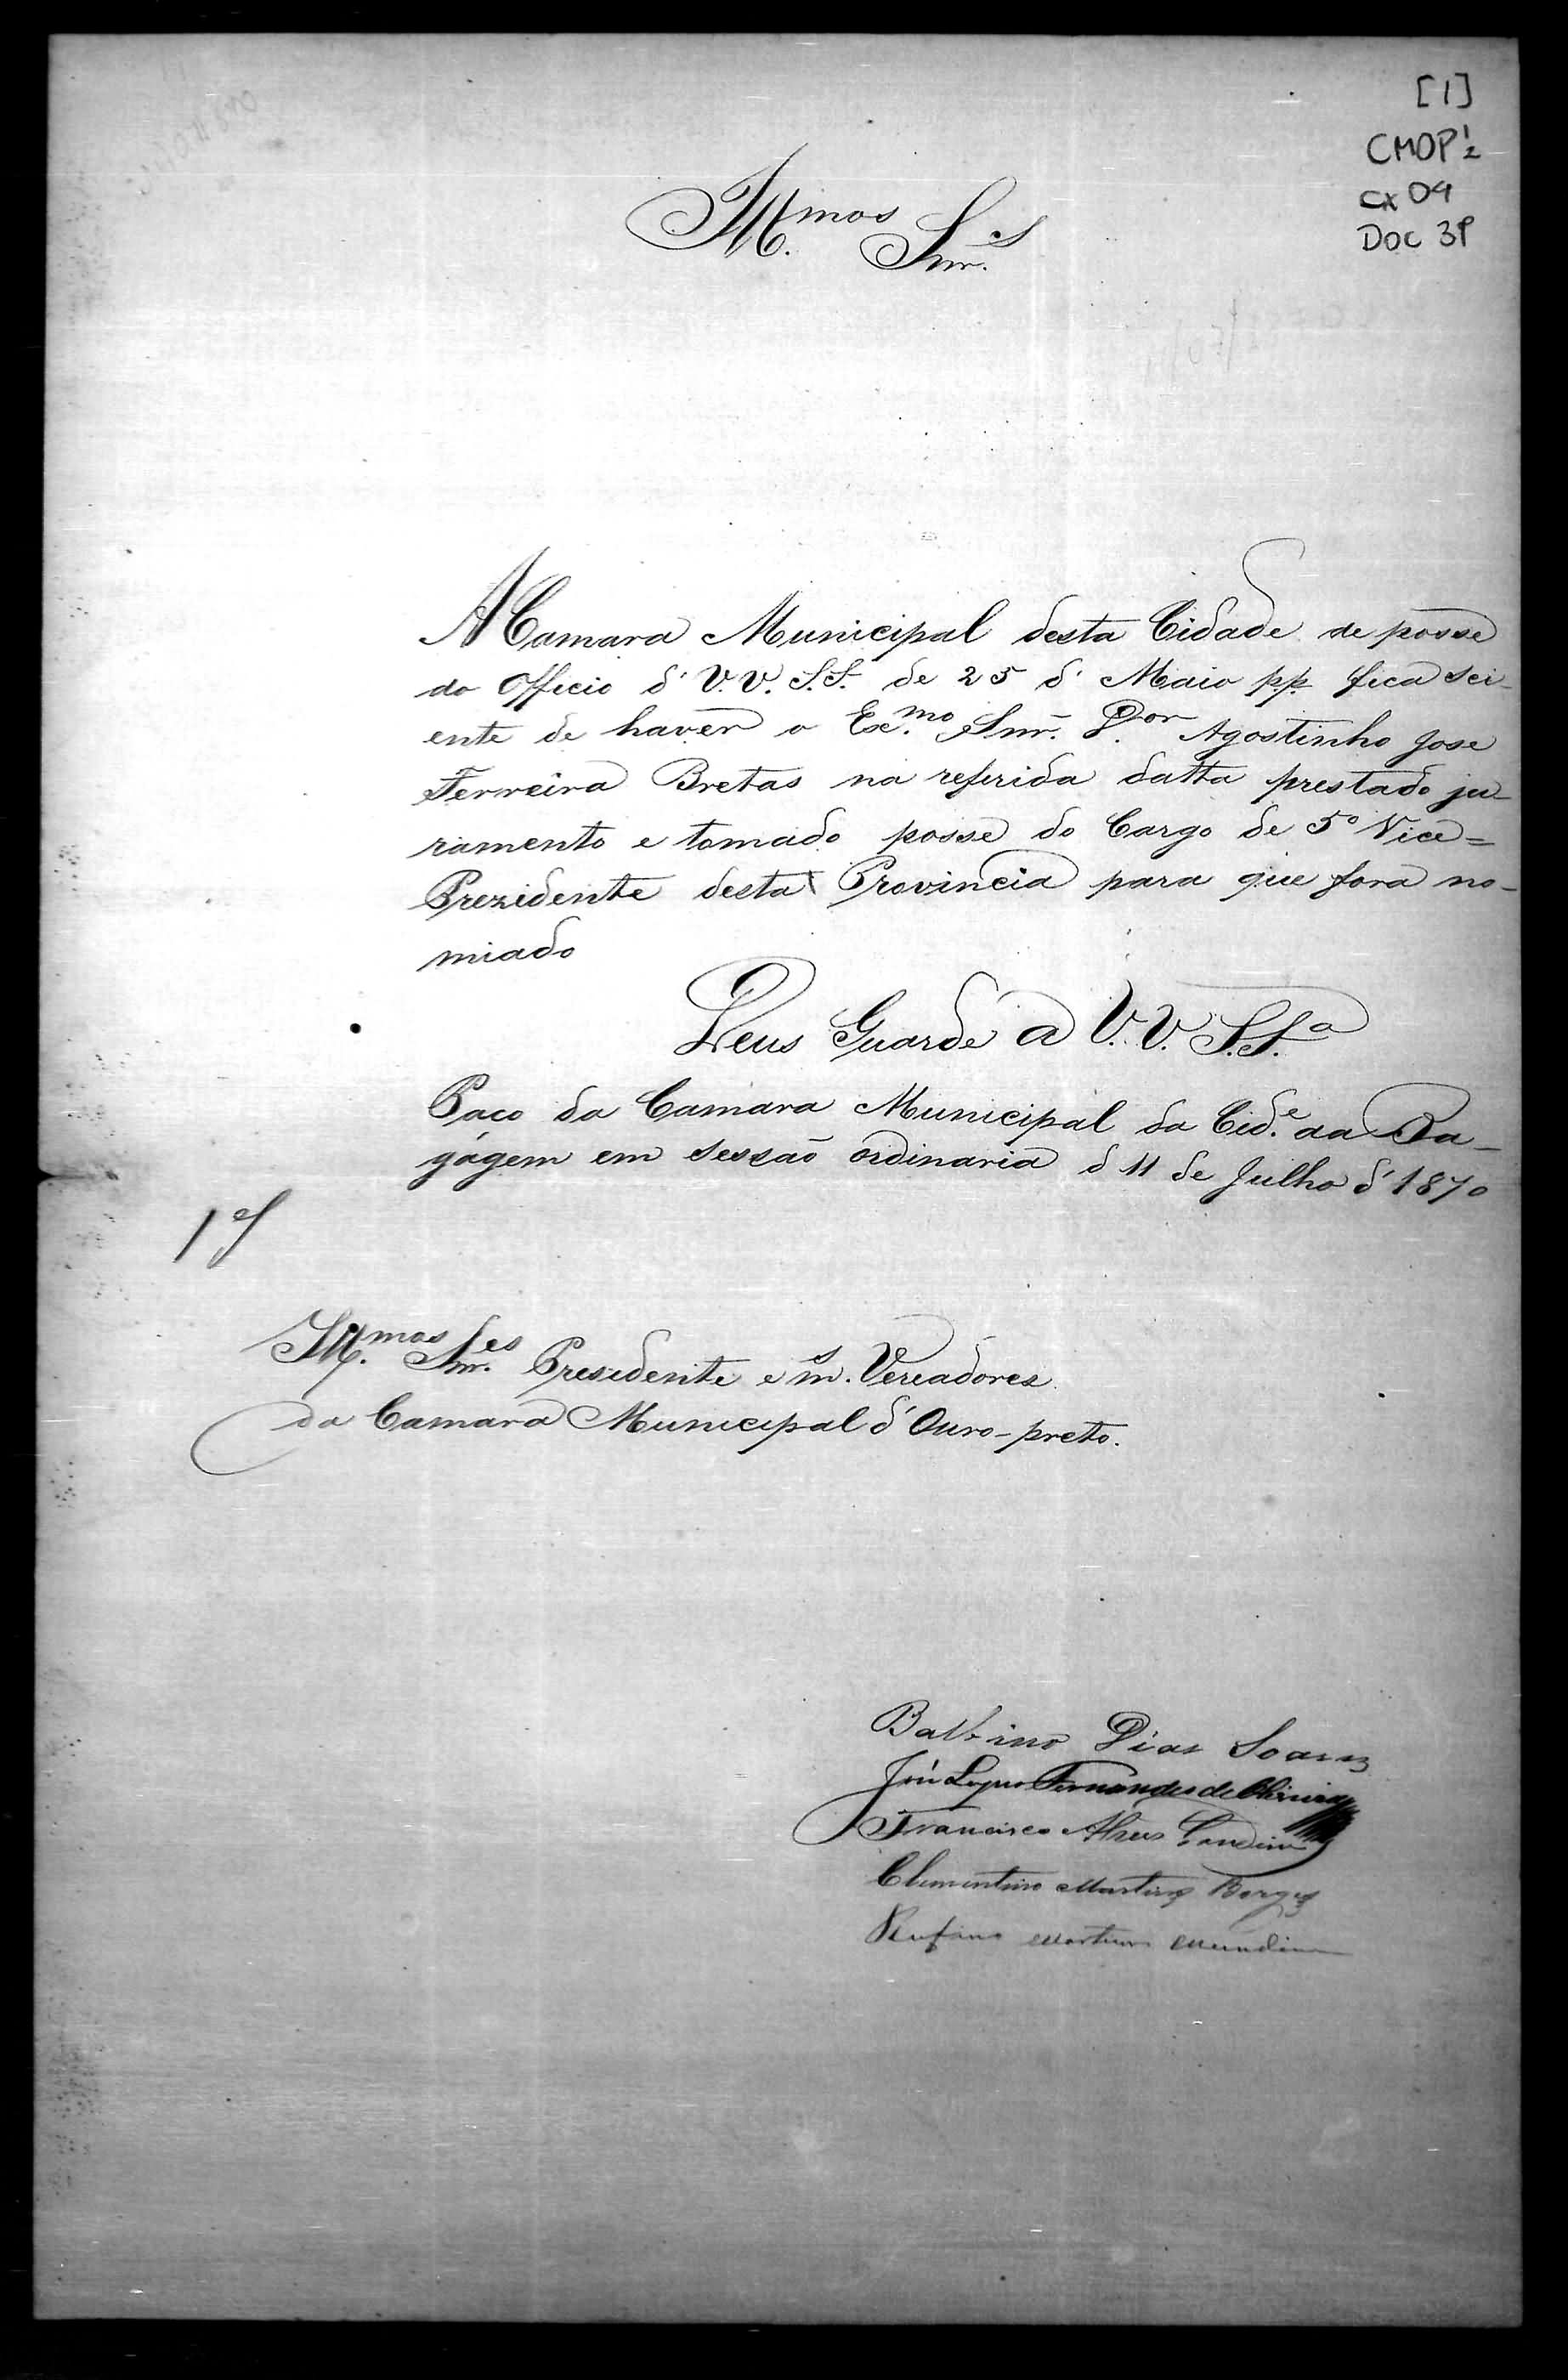 [1]
CMOP 1/2
cx 09
DOC 39
Ill.mos Snr.s
A Camara Municipal desta Cidade de posse
do Officio d' V.V. S.S. de 25 d' Maio pp. fica sci-
ente de haver o Ex.mo Snr. D.or Agostinho Jose
Ferreira Bretas na referida datta prestado ju-
ramento e tomado posse do Cargo de 5º Vice=
Prezidente desta Provincia para que fora no-
miado
Deus Guarde a V.V. S.S.a
Paço da Camara Municipal da Cid.e da Ba-
gagem em sessão ordinaria d 11 de Julho d' 1870
Ill.mos Snr.es Presidente e m.s Vereadores
da Camara Municipal d' Ouro-preto.
Balbino Dias Soares
Fernandes de Oliveira
Francisco Alves
Clementino Martins Borges
Rufino Martins